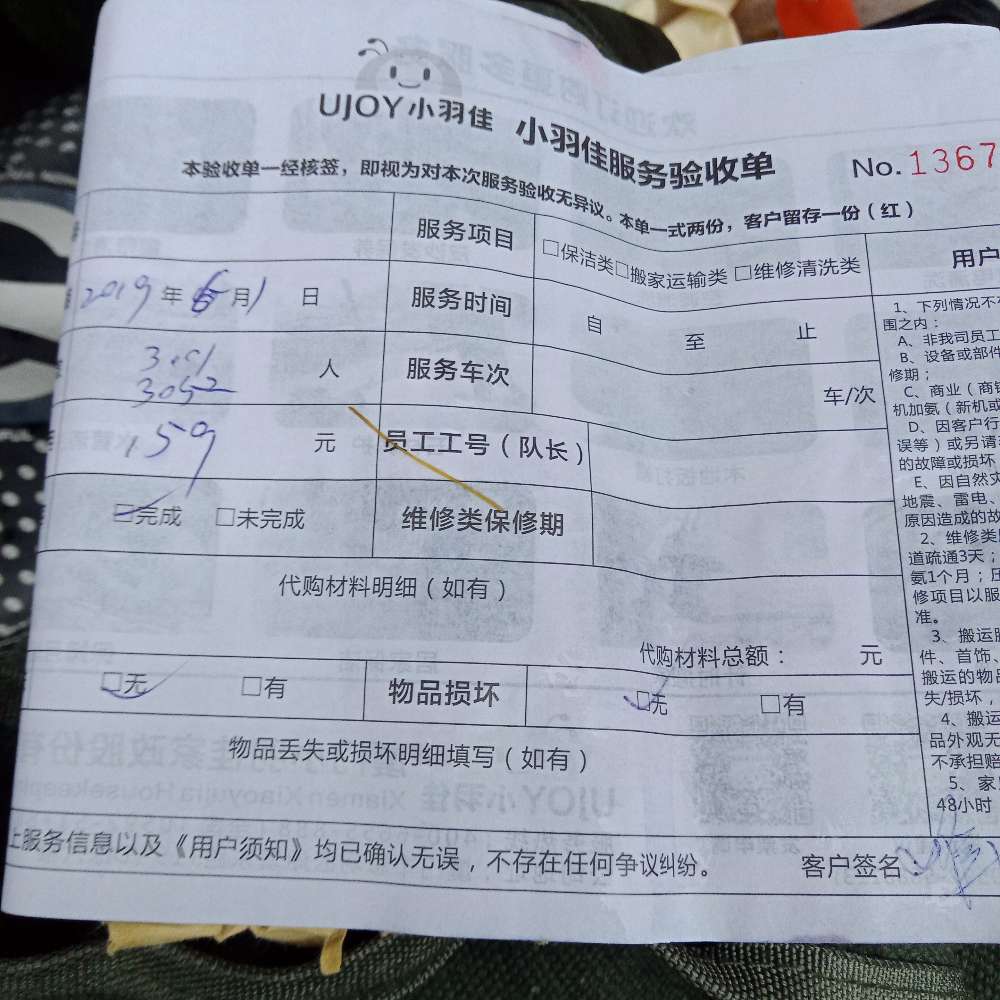 UJOY小羽佳 小羽佳服务验收单
No.1367
本验收单一经核签，即视为对本次服务验收无异议。本单一式两份，客户留存一份（红）
服务项目 □保洁类□搬家运输类 □维修清洗类
2019年6月1日 服务时间 自 至 止
3052 人 服务车次 车/次
159 元 员工工号（队长）
□完成 □未完成 维修类保修期
代购材料明细（如有）
代购材料总额： 元
□无 □有 物品损坏 □无 □有
物品丢失或损坏明细填写（如有）
上服务信息以及《用户须知》均已确认无误，不存在任何争议纠纷。 客户签名
用户
1、下列情况不
围之内：
A、非我司员工
B、设备或部件
修期；
C、商业（商
机加氨（新机或
D、因客户行
误等）或另请
的故障或损坏
E、因自然灾
地震、雷电、
原因造成的故
2、维修类
道疏通3天；
氨1个月；压
修项目以服
准。
3、搬运
件、首饰、
搬运的物品
失/损坏，
4、搬运
品外观无
不承担赔
5、家
48小时